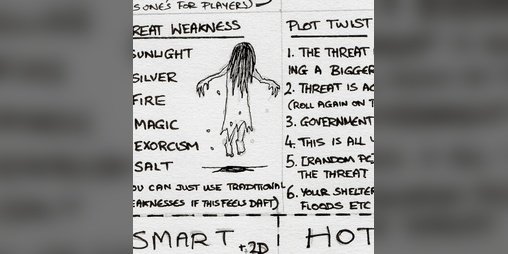 S ONE'S FOR PLAYERS)
REAT WEAKNESS
SUNLIGHT
SILVER
FIRE
MAGIC
EXORCISM
SALT
OU CAN JUST USE TRADITIONAL
EAKNESSES IF THIS FEELS DAFT)
PLOT TWIST
1. THE THREAT
ING A BIGGER
2. THREAT IS AC
(ROLL AGAIN ON T
3. GOVERNMENT
4. THIS IS ALL
5. [RANDOM PC]
THE THREAT
6. YOUR SHELTER
FLOODS ETC
SMART +2D
HOT